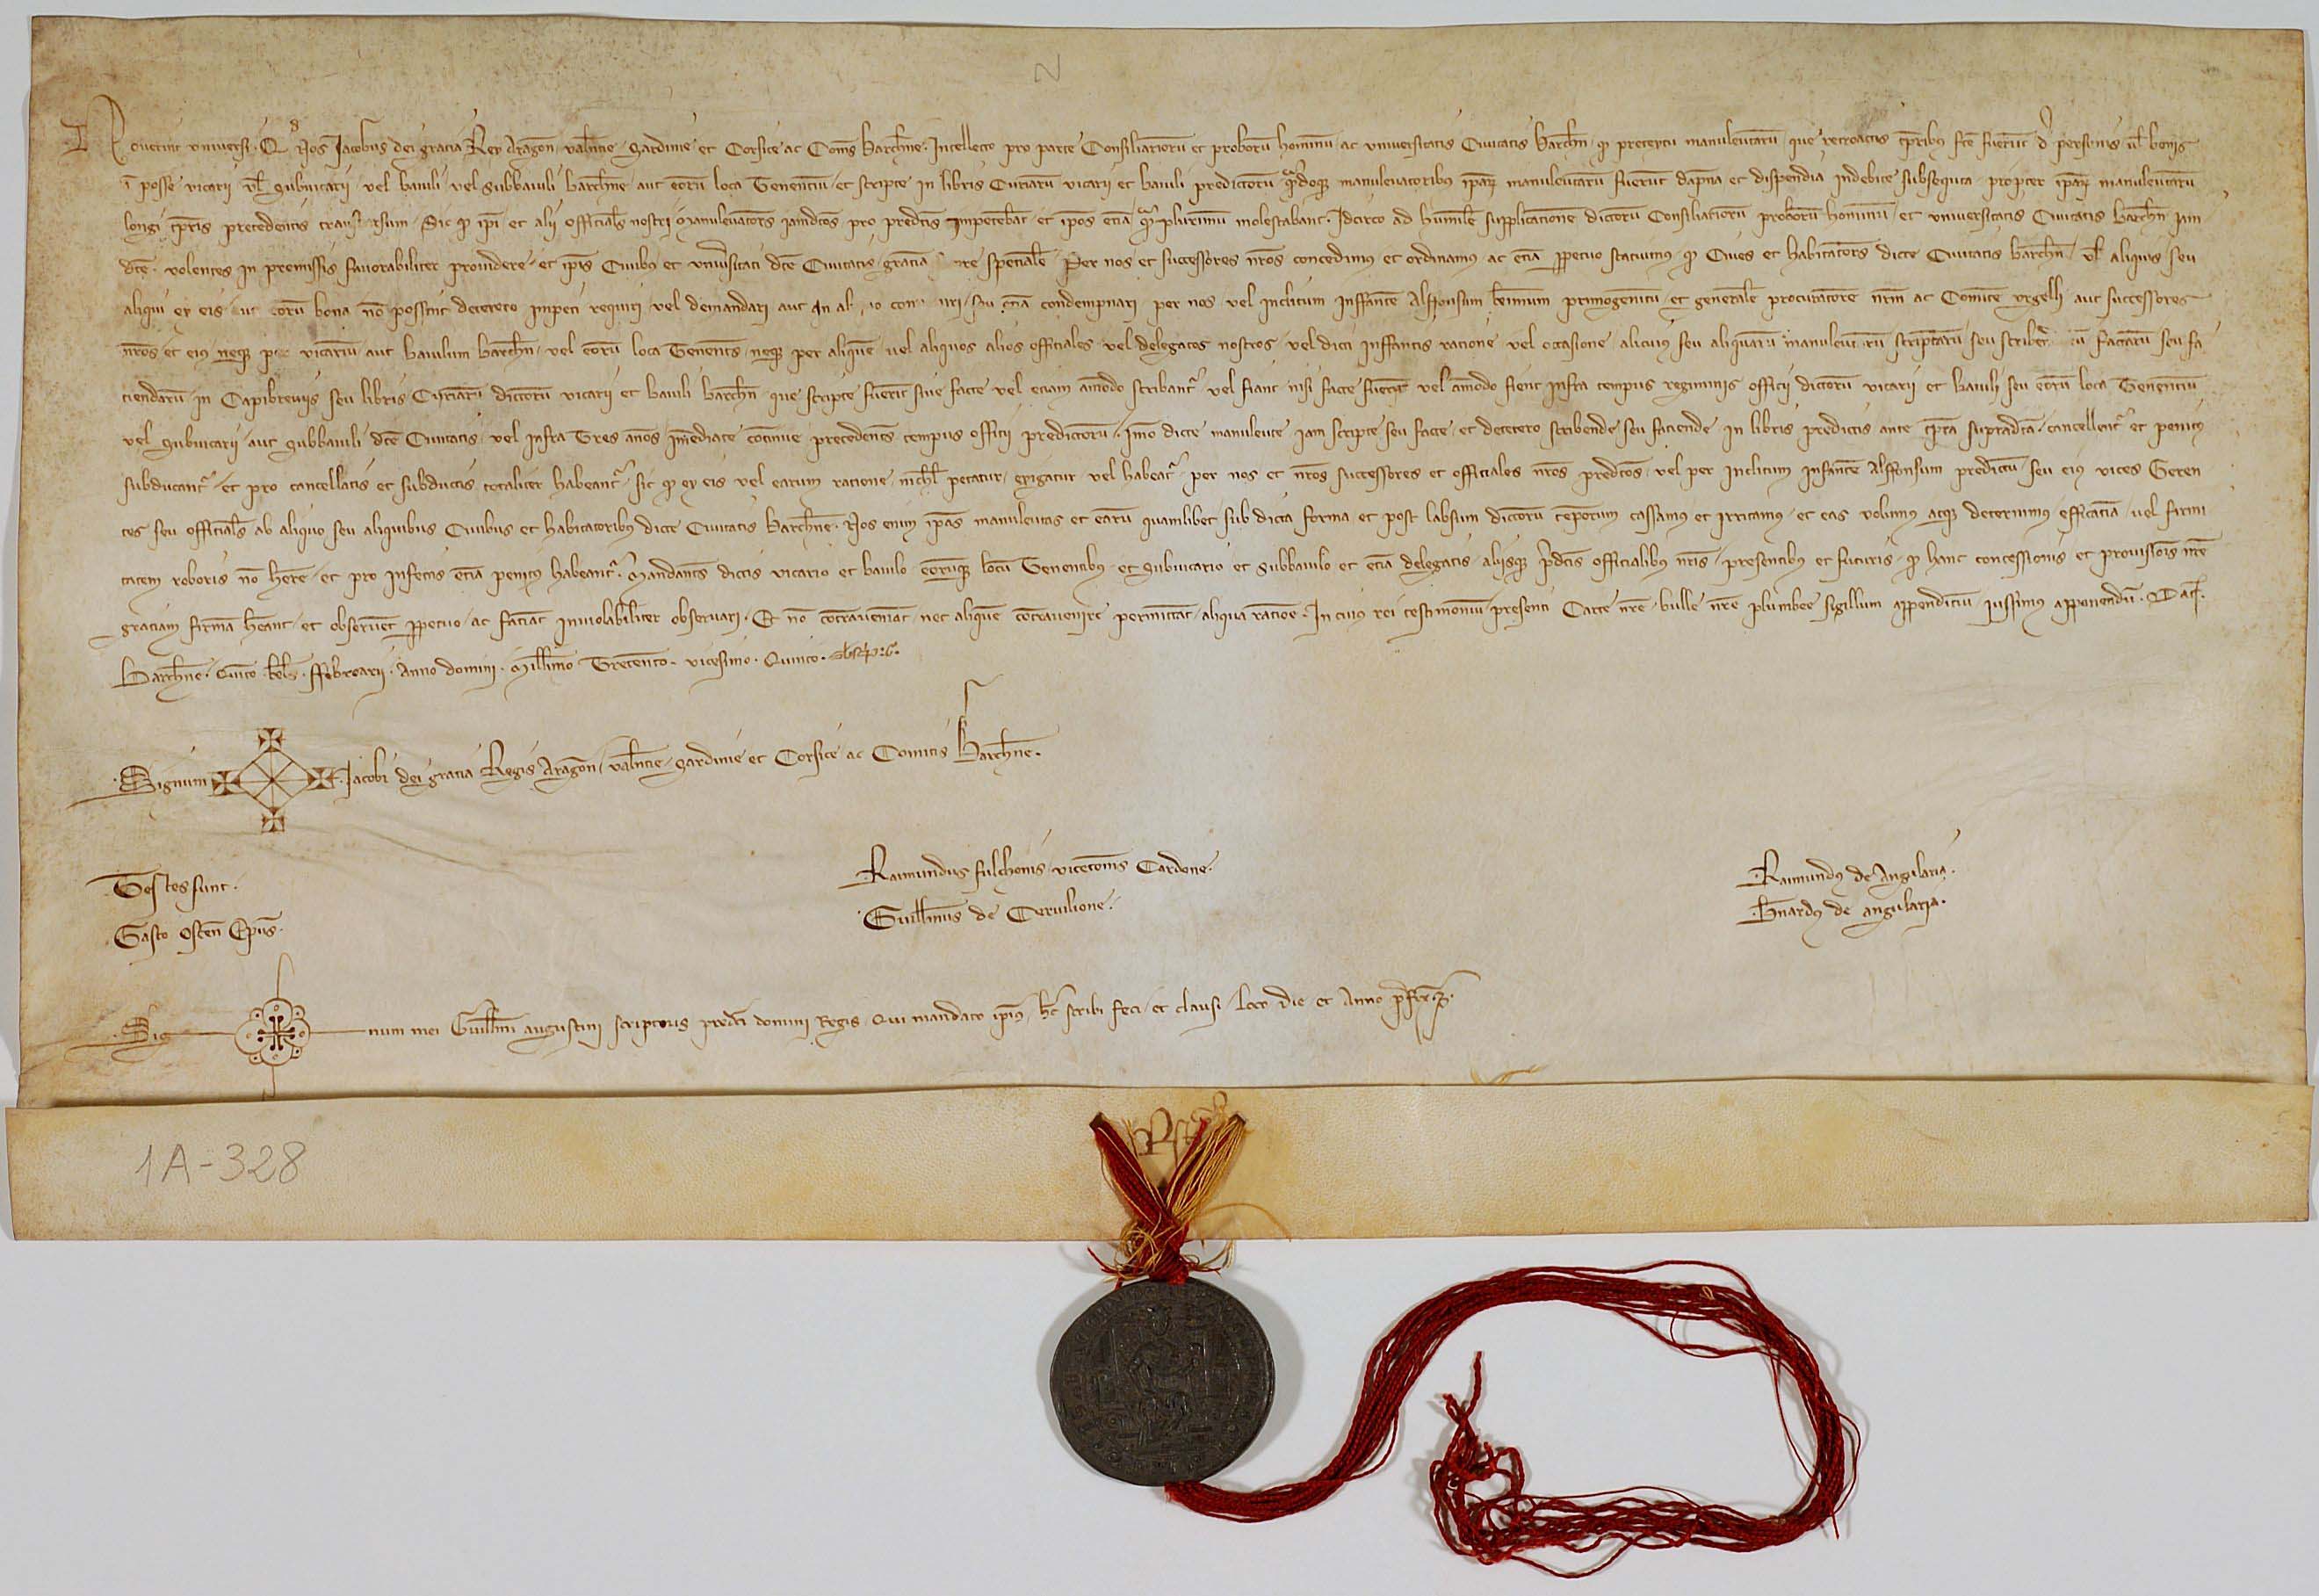 N
Noverint universi. Qd Nos Jacobus dei gracia Rex Aragon, Valncie, Sardinie et Corsice ac Coms Barchne. Intellecto pro parte Consiliariorū et proborū hominū ac universitatis Civitatis Barchn, qͥ pretextu manuleutarū que retroactis tp̄ribus fc̄e fuerūt d personis ul bonis
ī posse vicarii ul Subvicarii vel baiuli vel subbaiuli Barchne aut eorū loca Tenenciū et scripte in libris Curiarū vicarii et baiuli predictorū qn̄doq manulevatoribus ip̄ar manuleutarū fuerūt dāpna et dispendia indebite subsequta propter ip̄ar manuleutarū
longi tp̄ris precedentis Sic qͥ ip̄i et alii officials nostri Manulevators iamdcōs pro predcis impetebāt et ip̄os eciā qͣ plurimū molestabant. Idcirco ad humile supplicatione dictorū Consiliariorū proborū hominū et universitatis Civitatis Barchn iam
dc̄e. volentes in premissis favorabiliter providere et ip̄is Civibus et univ̄sitati dc̄e Civitatis graciā specialē Per nos et successores nr̄os concedimus et ordinamus ac eciā p̄petuo statuimus qͥ Cives et habitators dicte Civitatis barchn ul aliquis seu
aliqui ex eis eorū bona nō possint decetero impeti requiri vel demandari aut in condempnari per nos vel inclitum Inffantē Alffonsum k̄rimum primogenitū et generalē procuratorē nr̄m ac Comitē Urgelli aut successores
nr̄os et eius neq vicariū aut baiulum Barchn vel eorū loca Tenents neq per aliquē vel aliquos alios officiales vel delegatos nostros vel dicti inffantis ratione vel occasione alicuius seu aliquarū scriptarū seu factarū seu fa
ciendarū in Capibreviis seu libris Curiarū dictorū vicarii et baiuli Barchn que scripte fuerīt sive facte vel eciam āmodo scribant vel fiant nisi facte fuerūt vel āmodo fient infra tempus regiminis officii dictorū vicarii et baiuli seu eorū loca Tenenciū
vel Subvicarii aut Subbaiuli dc̄e Civitatis vel infra Tres ānos īmediate cōtinue precedents tempus officii predictorū. Imō dicte manuleute iam scripte seu facte et decetero scribende seu faciende in libris predictis ante tp̄ra supradcā cancellent et penitus
subducant et pro cancellatis et subductis totaliter habeant sic qͥ ex eis vel earum ratione nichl petatur exigatur vel habeat per nos et nr̄os successores et officiales nr̄os predcōs vel per inclitum infantē Alffonsum predictū seu eius vices Geren
tes seu officials ab aliquo seu aliquibus Civibus et habitatoribus dicte Civitatis Barchne. Nos enim ip̄as manuleutas et earū quamlibet sub dicta forma et post labsum dictorū tēporum cassamus et irritamus et eas volumus atq decernimus efficaciā vel firmi
tatem roboris nō hēre et pro infectis eciā penitus habeant. Mandants dictis vicario et baiulo eorūq locū Tenentibus et Subvicario et Subbaiulo et eciā delegatis aliisq p̄dcis officialibus nr̄is presentibus et futuris qͥ hanc concessionis et provisiōis nr̄e
graciam firmā hēant et observēt p̄petuo ac faciāt inviolabiliter observari. Et nō cōtraveniāt nec aliquē cōtravenire permittāt aliqua ratioē. In cuius rei testimoniū presenti Carte nr̄e bulle nr̄e plumbee sigillum appenditiū iussimus apponendū. Dat
Barchne. Quīto kls ffebroarii. Anno domini. Millimo Trecēnto. vicesimo. Quinto.
Signum Jacobi dei gracia Regis Aragon, Valncie, Sardinie et Corsice ac Comitis Barchne.
Testes sunt.
Gasto Oscen Ep̄us.
Raimundus fulchonis vicecomis Cardone.
Guillms de Cervilione.
Raimundus de Angularia.
Bn̄ardus de angularia.
Sig num mei Guillmi augustini scriptoris predcī domini Regis Qui mandato ip̄ius hec scribi feci et clausi loco die et Anno
1A-328